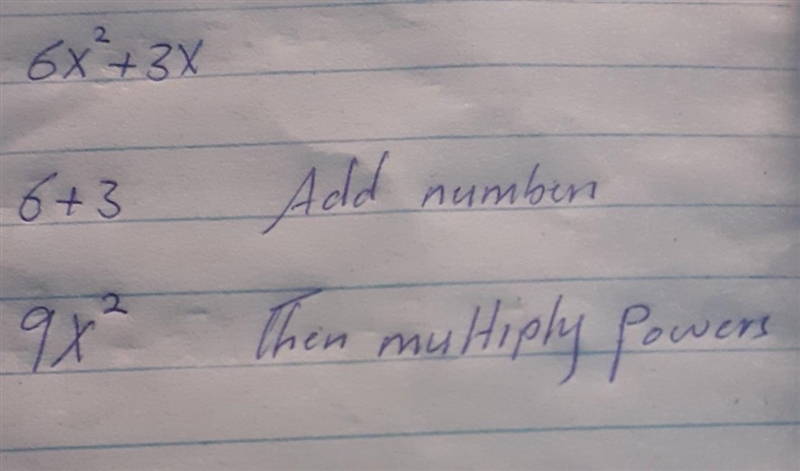 6x²+3x
6+3 Add number
9x² Then multiply Powers